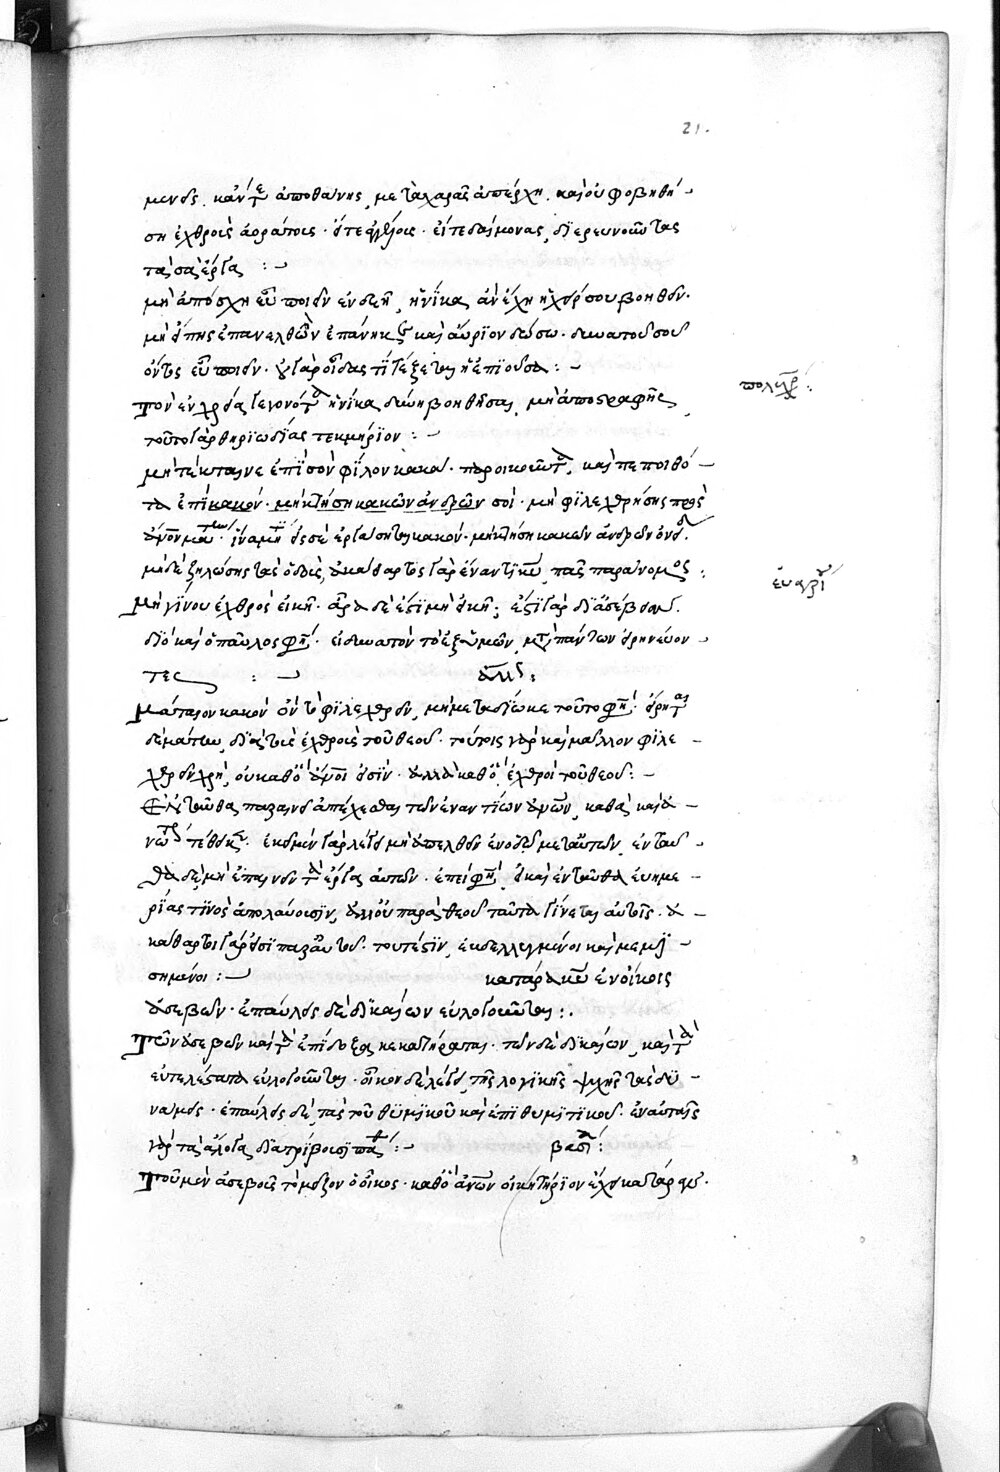 21.
μενος. κἄν τε ἀποθάνης, μετὰ χαρᾶς ἀπέρχη. καὶ οὐ φοβηθή-
ση ἐχθροὺς ἀοράτους. εἴτε ἀγγέλους. εἴτε δαίμονας, διερευνοῦντας
τὰ σὰ ἔργα :-
μὴ ἀπόσχη εὖ ποιεῖν ἐνδεῆ, ἡνίκα ἂν ἔχη ἡ χείρ σου βοηθεῖν.
μὴ εἴπης ἐπανελθὼν ἐπάνηκε καὶ αὔριον δώσω. δυνατοῦ σου
ὄντος εὖ ποιεῖν. οὐ γὰρ οἶδας τί τέξεται ἡ ἐπιοῦσα :-
πολυχρ :
Τὸν ἐν χρεία γεγονότα ἡνίκα δύνη βοηθῆσαι, μὴ ἀποστραφῆς
τοῦτο γὰρ θηριωδίας τεκμήριον :-
μὴ τέκταινε ἐπὶ σὸν φίλον κακά. παροικοῦντα, καὶ πεποιθό-
τα ἐπὶ κακόν. μὴ κτήση κακῶν ἀνδρῶν σοί. μὴ φιλεχθρήσης πρὸς
ἄνον μάτην. ἵνα μή τι εἰς σὲ ἐργάσηται κακόν. μὴ κτήση κακῶν ἀνδρῶν ὀνείδη.
μηδὲ ζηλώσης τὰς ὁδοὺς, ἀκάθαρτος γὰρ ἔναντι κυ, πᾶς παράνομος :
εὐαγρί
Μὴ γίνου ἐχθρὸς εἰκῆ. ἆρα δὲ ἔστι μὴ εἰκῆ; ἔστι γὰρ δι' ἀσέβειαν.
διὸ καὶ ὁ παῦλος φησί. εἰ δυνατὸν τὸ ἐξ ὑμῶν, μετὰ πάντων εἰρηνεύον-
τες :- ἄλλος :
Μάταιον κακὸν ὂν τὸ φιλεχθρεῖν, μὴ μεταδίωκε τοῦτο φησί. εἴρηται
δὲ μάτην, διὰ τοὺς ἐχθροὺς τοῦ θεοῦ. τούτοις γὰρ καὶ μᾶλλον φιλε-
χθρεῖν χρή, οὐ καθὸ ἄνοι εἰσίν. ἀλλὰ καθὸ ἐχθροὶ τοῦ θεοῦ :-
Ἐνταῦθα παραινεῖ ἀπέχεσθαι τῶν ἐναντίων ἀνων, καθὰ καὶ ἀ-
νωτέρω τέθεικε. ἐκεῖ μὲν γὰρ λέγει μὴ ἀπελθεῖν ἐν ὁδῶ μετ' αὐτῶν, ἐνταῦ-
θα δὲ, μὴ ἐπαινεῖν τὰ ἔργα αὐτῶν. ἐπεί φησι, εἰ καὶ ἐνταῦθα εὐημε-
ρίας τινὸς ἀπολαύουσιν, ἀλλ' οὐ παρὰ θεοῦ ταῦτα γίνεται αὐτοῖς. ἀ-
κάθαρτοι γάρ εἰσι παρ' αὐτοῦ. τουτέστιν, ἐκβεβλημένοι καὶ μεμι-
σημένοι :- κατάρα κυ ἐν οἴκοις
ἀσεβῶν. ἐπαύλεις δὲ δικαίων εὐλογοῦνται :.
Τῶν ἀσεβῶν καὶ τὰ ἐπίδοξα κεκατήραται. τῶν δὲ δικαίων, καὶ τὰ
εὐτελέστατα εὐλογοῦνται. οἶκον δὲ λέγει, τῆς λογικῆς ψυχῆς τὰς δυ-
νάμεις. ἐπαύλεις δὲ, τὰς τοῦ θυμικοῦ καὶ ἐπιθυμητικοῦ. ἐν αὐταῖς
γὰρ τὰ ἄλογα διατρίβουσι πάθη :- βασι :
Τοῦ μὲν ἀσεβοῦς τὸ μεῖζον ὁ οἶκος. καθὸ ἀνων οἰκητήριον ἔχει κατάραν.